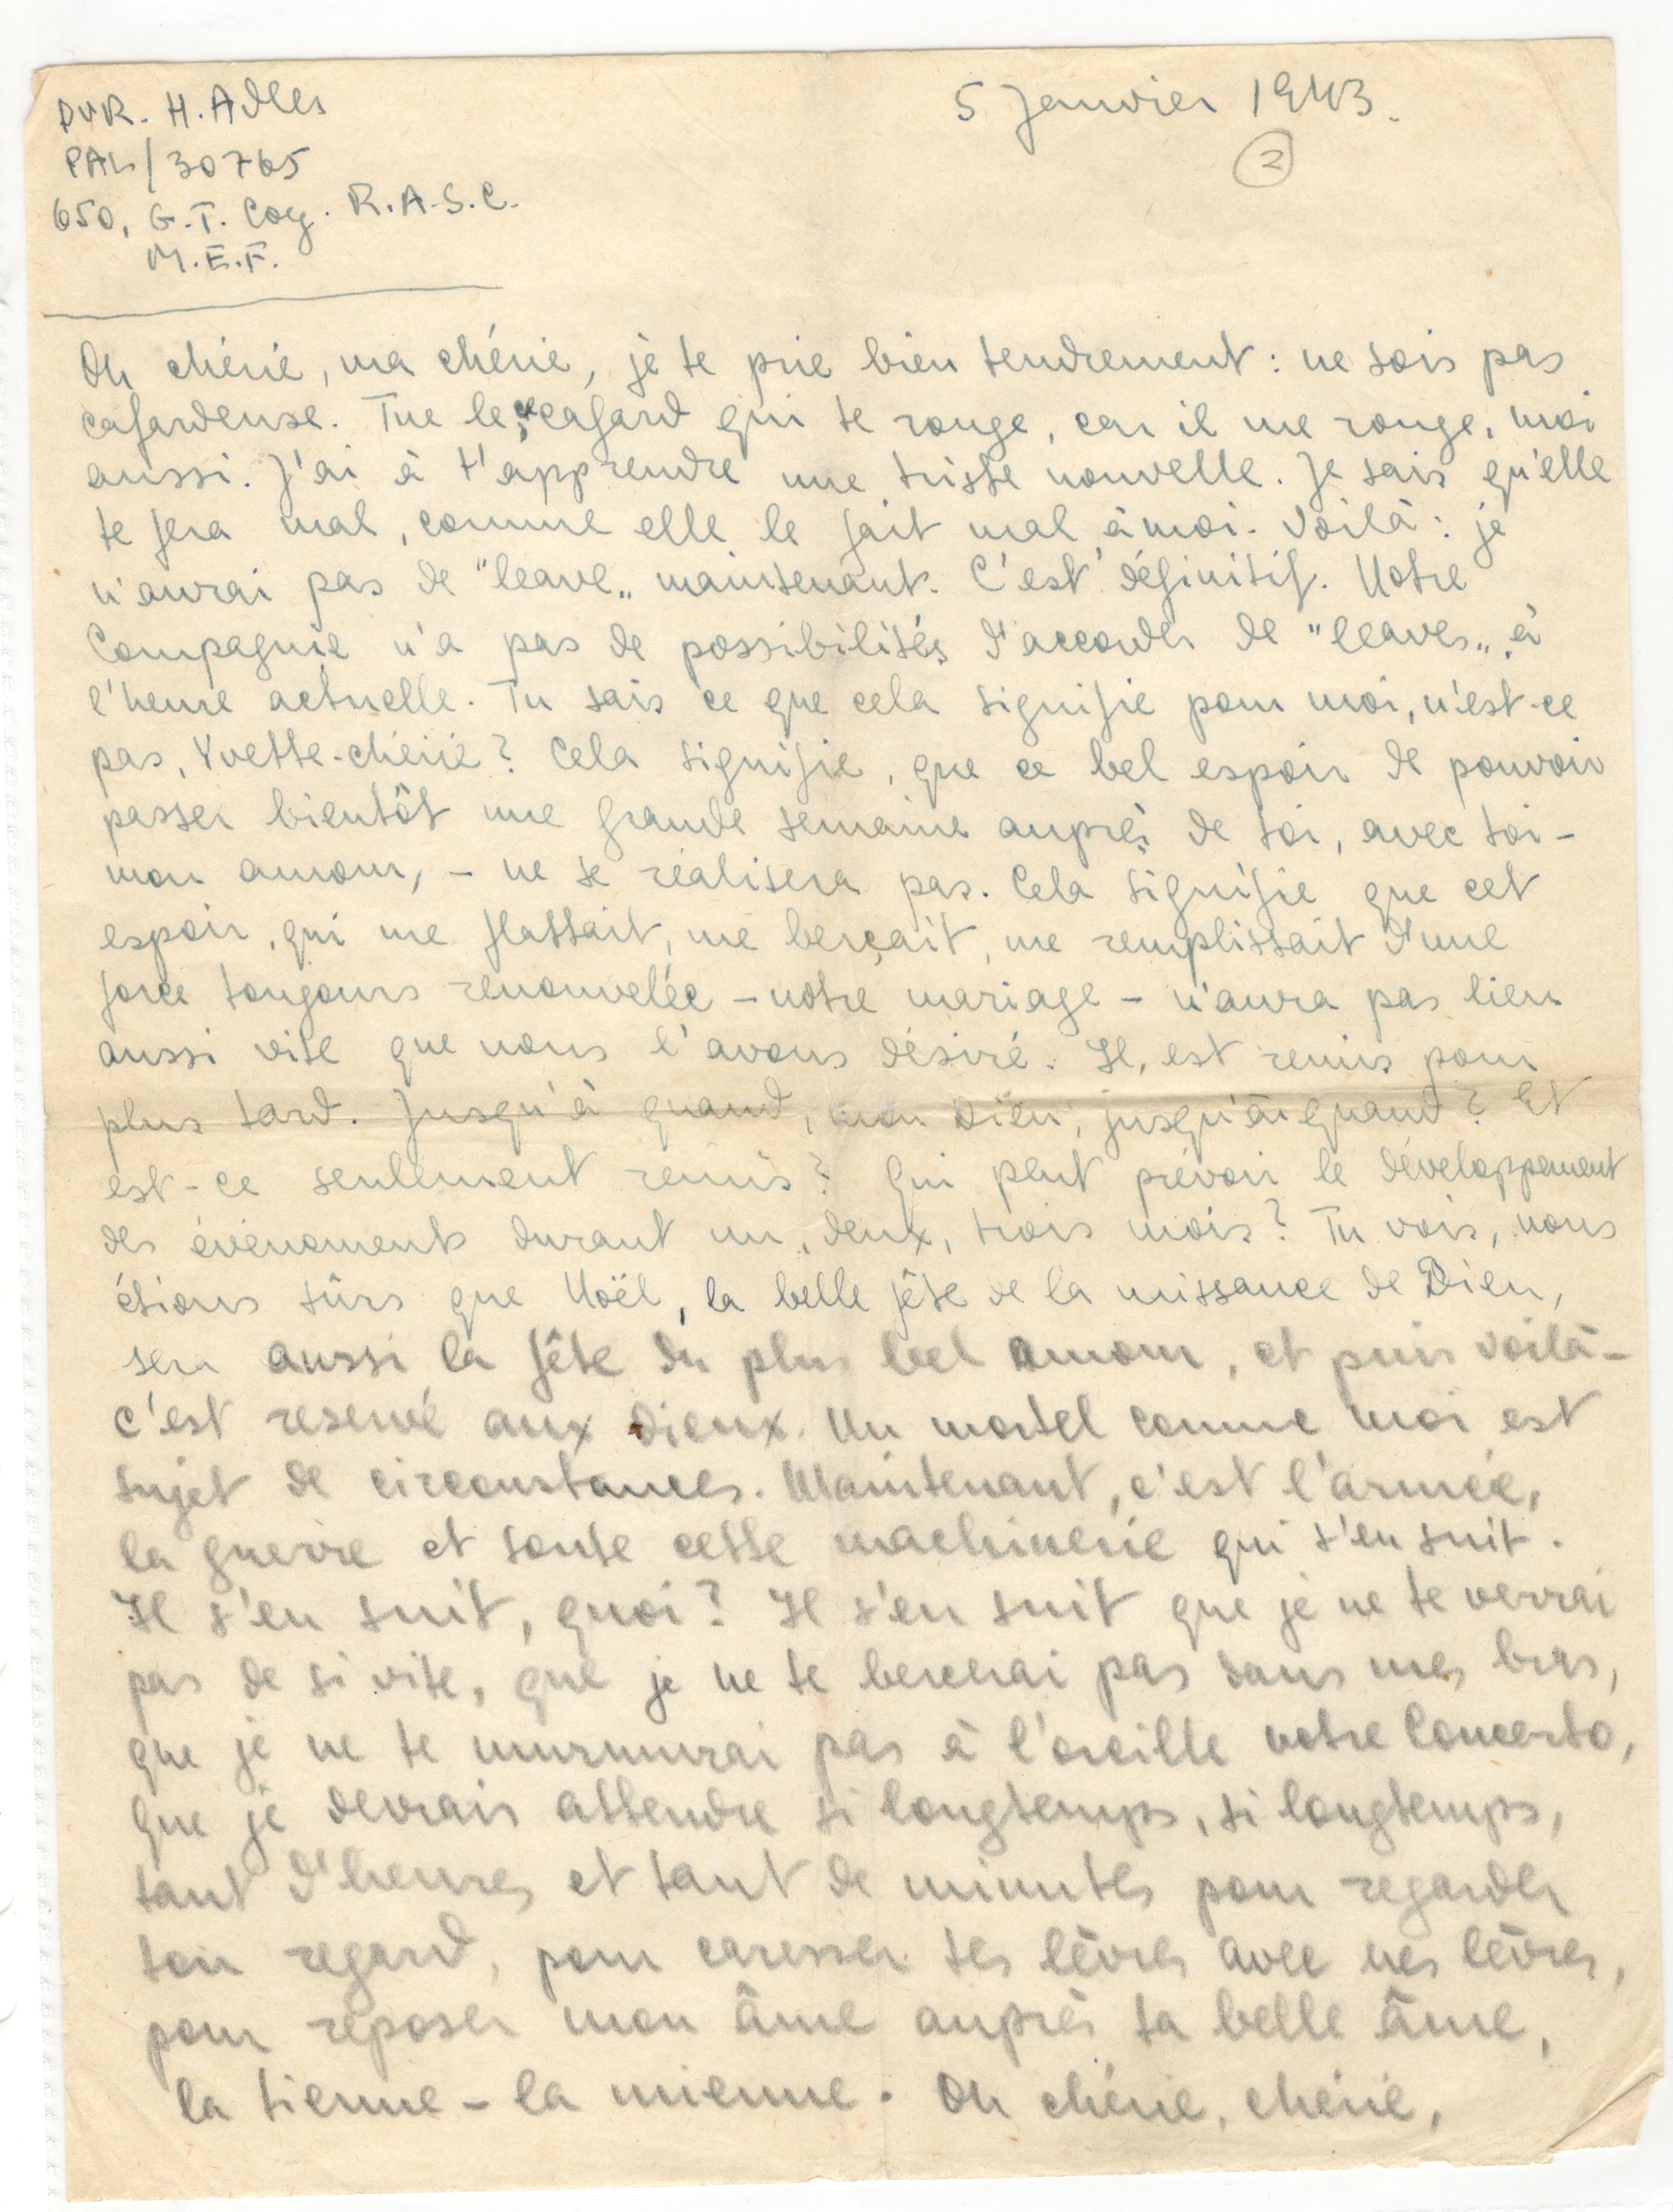 DVR. H. Adler
PAL/30765
650, G.T. Coy. R.A.S.C.
M.E.F.
5 Janvier 1943.
2
Oh chérie, ma chérie, je te prie bien tendrement : ne sois pas
cafardeuse. Tue le cafard qui te ronge, car il me ronge, moi
aussi. J'ai à t'apprendre une triste nouvelle. Je sais qu'elle
te fera mal, comme elle le fait mal à moi. Voilà : je
n'aurai pas de "leave„ maintenant. C'est définitif. Notre
Compagnie n'a pas de possibilités d'accorder de "leaves„ à
l'heure actuelle. Tu sais ce que cela signifie pour moi, n'est-ce
pas, Yvette-chérie ? Cela signifie, que ce bel espoir de pouvoir
passer bientôt une grande semaine auprès de toi, avec toi -
mon amour, - ne se réalisera pas. Cela signifie que cet
espoir, qui me flattait, me berçait, me remplissait d'une
force toujours renouvelée - notre mariage - n'aura pas lieu
aussi vite que nous l'avons désiré. Il est remis pour
plus tard. Jusqu'à quand, mon Dieu, jusqu'à quand ? Et
est-ce seulement remis ? Qui peut prévoir le développement
des évènements durant un, deux, trois mois ? Tu vois, nous
étions sûrs que Noël, la belle fête de la naissance de Dieu,
sera aussi la fête du plus bel amour, et puis voilà -
c'est reservé aux Dieux. Un mortel comme moi est
sujet de circonstances. Maintenant, c'est l'armée,
la guerre et toute cette machinerie qui s'en suit.
Il s'en suit, quoi ? Il s'en suit que je ne te verrai
pas de si vite, que je ne te bercerai pas dans mes bras,
que je ne te murmurai pas à l'oreille notre Concerto,
que je devrais attendre si longtemps, si longtemps,
tant d'heures et tant de minutes pour regarder
ton regard, pour caresser tes lèvres avec mes lèvres,
pour reposer mon âme auprès ta belle âme,
la tienne - la mienne. Oh chérie, chérie,